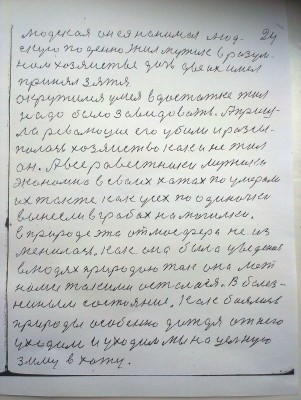 людская он ся нанимал люд- 24
скую поденно. Жил мужик в разум-
ном хозяйстве дочь двоих имел
принял зятя
окружился умел в достатке жил
надо было завидовать. А пришу-
ла революция его убили и разсы-
палось хозяйство как и не жил
он. А все ровестники мужики
экономно в своих хатах поумерали
их также как усех по одиночки
вынесли в грабах на могилки.
В природе эта отмосфера не из
менилась. Как она была уведена
в людях природою так она мот
нами такими осталася. В болез-
нимым состояние. Как боялись
природы особенно дождя от него
уходим и уходим мы на целную
зиму в хату.